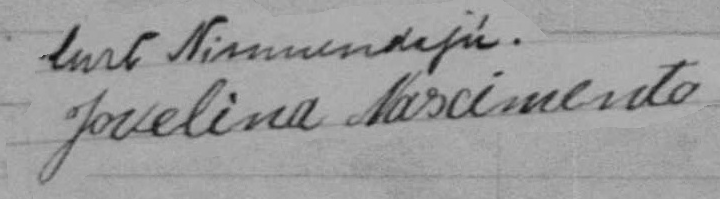 Curt Nimuendajú.
Jovelina Nascimento